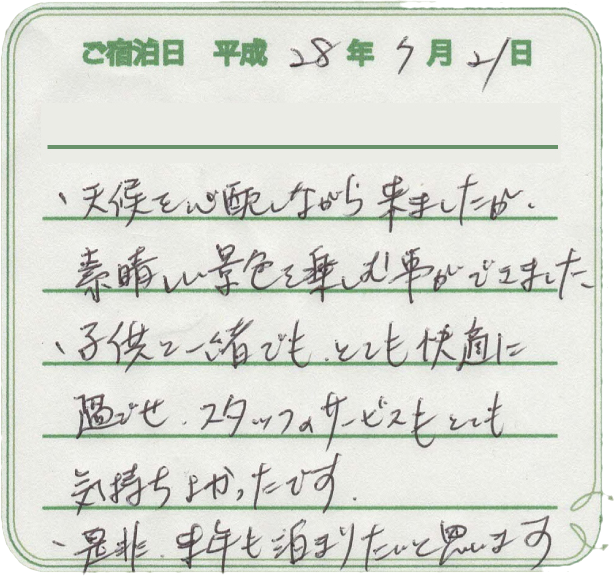 ご宿泊日 平成 28 年 7 月 21 日
、天候を心配しながら来ましたが、
素晴しい景色を楽しむ事ができました
、子供と一緒でも、とても快適に
過ごせ、スタッフのサービスもとても
気持ちよかったです。
、是非、来年も泊まりたいと思います